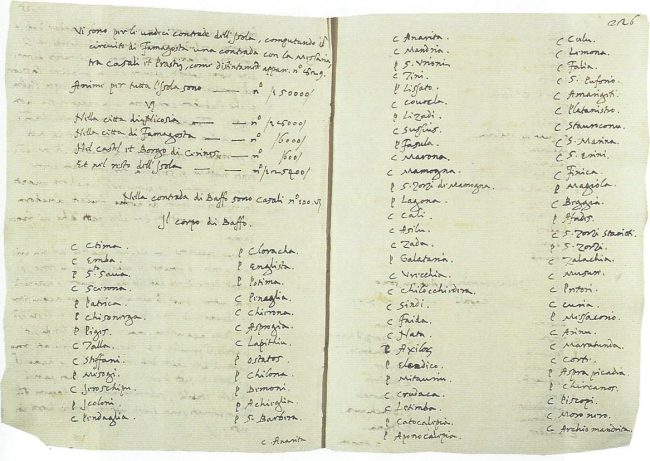 Vi sono per le undici contrade dell'Isola, computando il
circuito di Famagosta una contrada con la Messaria,
tra Casali et Prastij, come distintamente appar. n°
Anime per tutta l'Isola sono — n°
Nella citta di Nicosia — n°
Nella citta di Famagosta — n°
Nel castel et Borgo di Cirines — n°
Et nel resto dell'Isola — n°
Nella contrada di Baffo sono Casali n°
Il corpo di Baffo.
c Ctima.
c Emba.
p S.ta Savia.
c Scirona.
p Patrica.
p Chisonerga.
p Piges.
c Talla.
c Steffani.
p Misogi.
c Jeroschipu.
p Jcoloni.
c Pendaglia.
p Cloracha.
p Englistra.
p Potima.
c Pinaglia.
c Chirrona.
c Asprogia.
c Lapithiu.
p Ostatos
p Chilona.
p Dimoni.
p Achieglia.
p S. Barbera.
c Anarita
c Anarita.
c Mandria.
p S. Vrioni
c Tini.
p Lissato.
c Covocla.
p Lizadi.
c Suskiu.
p Fasula.
c Marona.
c Mamogna.
p S. Zorzi di Mamogna.
p Lagona.
c Cali.
c Asilu.
c Zada.
p Galataria.
c Vricchia.
c Chilocchidera.
c Sindi.
c Faida.
c Nata.
p Axilos.
p Elendico.
p Mitauru.
c Coudaca.
c Letimba.
p Catocalopia.
p Aponocalopia.
226
c Culu.
c Limona.
c Falia.
c S. Eufonio.
c Amargiti.
c Platanistro.
c Stauroconu.
c S. Marina.
c S. Erini.
c Finica.
p Maggiola.
c Breggia.
p Afadis.
c S. Zorzi Staniti.
p S. Zorzi.
c Zalachia.
c Musur.
c Pretori.
c curia.
p Missacorio.
c Axinu.
c Maratunda.
c Corti.
p Aspra picadra
p Chircanos.
c Piscopi.
c Moro nero.
c Archiomandrita.